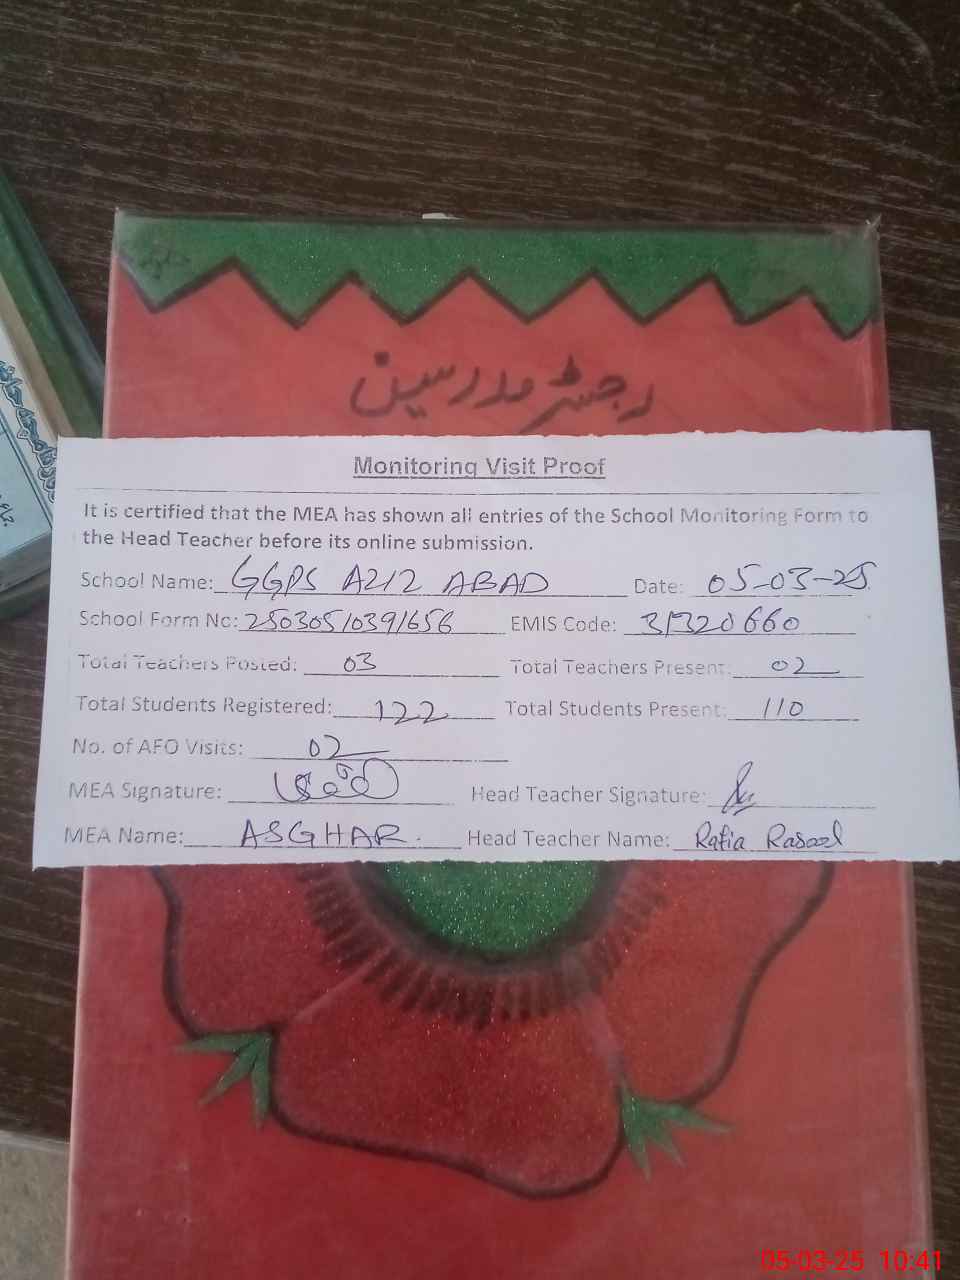 رجسٹر مدرسین
Monitoring Visit Proof
It is certified that the MEA has shown all entries of the School Monitoring Form to
the Head Teacher before its online submission.
School Name: GGPS AZIZ ABAD Date: 05-03-25
School Form No: 25030510391656 EMIS Code: 31320660
Total Teachers Posted: 03 Total Teachers Present: 02
Total Students Registered: 122 Total Students Present: 110
No. of AFO Visits: 02
MEA Signature: Head Teacher Signature:
MEA Name: ASGHAR. Head Teacher Name: Rafia Rasool
05-03-25 10:41